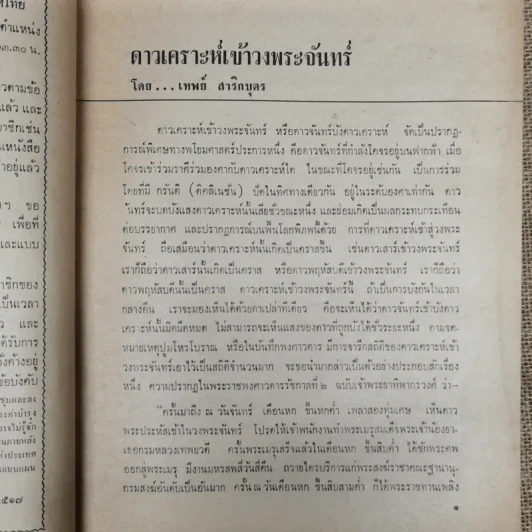 ศไทย
ตำแหน่ง
๓.๓๐ น.
วตามข้อ
แล้ว และ
าชิกเช่น
นหนังสือ
อยู่แล้ว
ขอ
เพื่อที่
และแบบ
าชิกของ
เป็นเวลา
ว และ
ด้รับการ
ังค้างอยู่
ข้อบังคับ
๕๑๗
ดาวเคราะห์เข้าวงพระจันทร์
โดย...เทพย์ สาริกบุตร
ดาวเคราะห์เข้าวงพระจันทร์ หรือดาวจันทร์บังดาวเคราะห์ จัดเป็นปรากฏ-
การณ์พิเศษทางพโยมศาสตร์ประการหนึ่ง คือดาวจันทร์ที่กำลังโคจรอยู่บนฟากฟ้า เมื่อ
โคจรเข้าร่วมราศีร่วมองศากับดาวเคราะห์ใด ในขณะที่โคจรอยู่เช่นกัน เป็นการร่วม
โดยที่มี กรันติ (ดิคลิเนชั่น) ปัดในทิศทางเดียวกัน อยู่ในระดับองศาเท่ากัน ดาว
จันทร์จะบดบังแสงดาวเคราะห์นั้นเสียชั่วขณะหนึ่ง และย่อมเกิดเป็นผลกระทบกระเทือน
ต่อบรรยากาศ และปรากฏการณ์บนพื้นโลกพิภพนี้ด้วย การที่ดาวเคราะห์เข้าสู่วงพระ
จันทร์ ถือเสมือนว่าดาวเคราะห์นั้นเกิดเป็นคราสขึ้น เช่นดาวเสาร์เข้าวงพระจันทร์
เราก็ถือว่าดาวเสาร์นั้นเกิดเป็นคราส หรือดาวพฤหัสบดีเข้าวงพระจันทร์ เราก็ถือว่า
ดาวพฤหัสบดีนั้นเป็นคราส ดาวเคราะห์เข้าวงพระจันทร์นี้ ถ้าเป็นการบังกันในเวลา
กลางคืน เราจะมองเห็นได้ด้วยตาเปล่าทีเดียว คือจะเห็นได้ว่าดาวจันทร์เข้าบังดาว
เคราะห์นั้นมิดมืดหมด ไม่สามารถจะเห็นแสงของดาวที่ถูกบังได้ชั่วระยะหนึ่ง ตามจด-
หมายเหตุปูมโหรโบราณ หรือในบันทึกพงศาวดาร มีการจารึกสถิติของดาวเคราะห์เข้า
วงพระจันทร์เอาไว้เป็นสถิติจำนวนมาก จะขอนำมากล่าวเป็นตัวอย่างประกอบสักเรื่อง
หนึ่ง ความปรากฏในพระราชพงศาวดารรัชกาลที่ ๒ ฉบับเจ้าพระยาทิพากรวงศ์ ว่า–
“ครั้นมาถึง ณ วันจันทร์ เดือนหก ขึ้นหกค่ำ เพลาสองทุ่มเศษ เห็นดาว
พระประหัสเข้าในวงพระจันทร์ โปรดให้เจ้าพนักงานทำพระเมรุสมเด็จพระเจ้าน้องยา-
เธอกรมหลวงเทพยวดี ครั้นพระเมรุเสร็จแล้วในเดือนหก ขึ้นสิบค่ำ ได้ชักพระศพ
ออกสู่พระเมรุ มีงานมหรสพสี่วันสี่คืน ถวายไครบริการแก่พระสงฆ์ราชาคณะฐานานุ-
กรมสงฆ์อันดับเป็นอันมาก ครั้น ณ วันเดือนหก ขึ้นสิบสามค่ำ ก็ได้พระราชทานเพลิง
๑